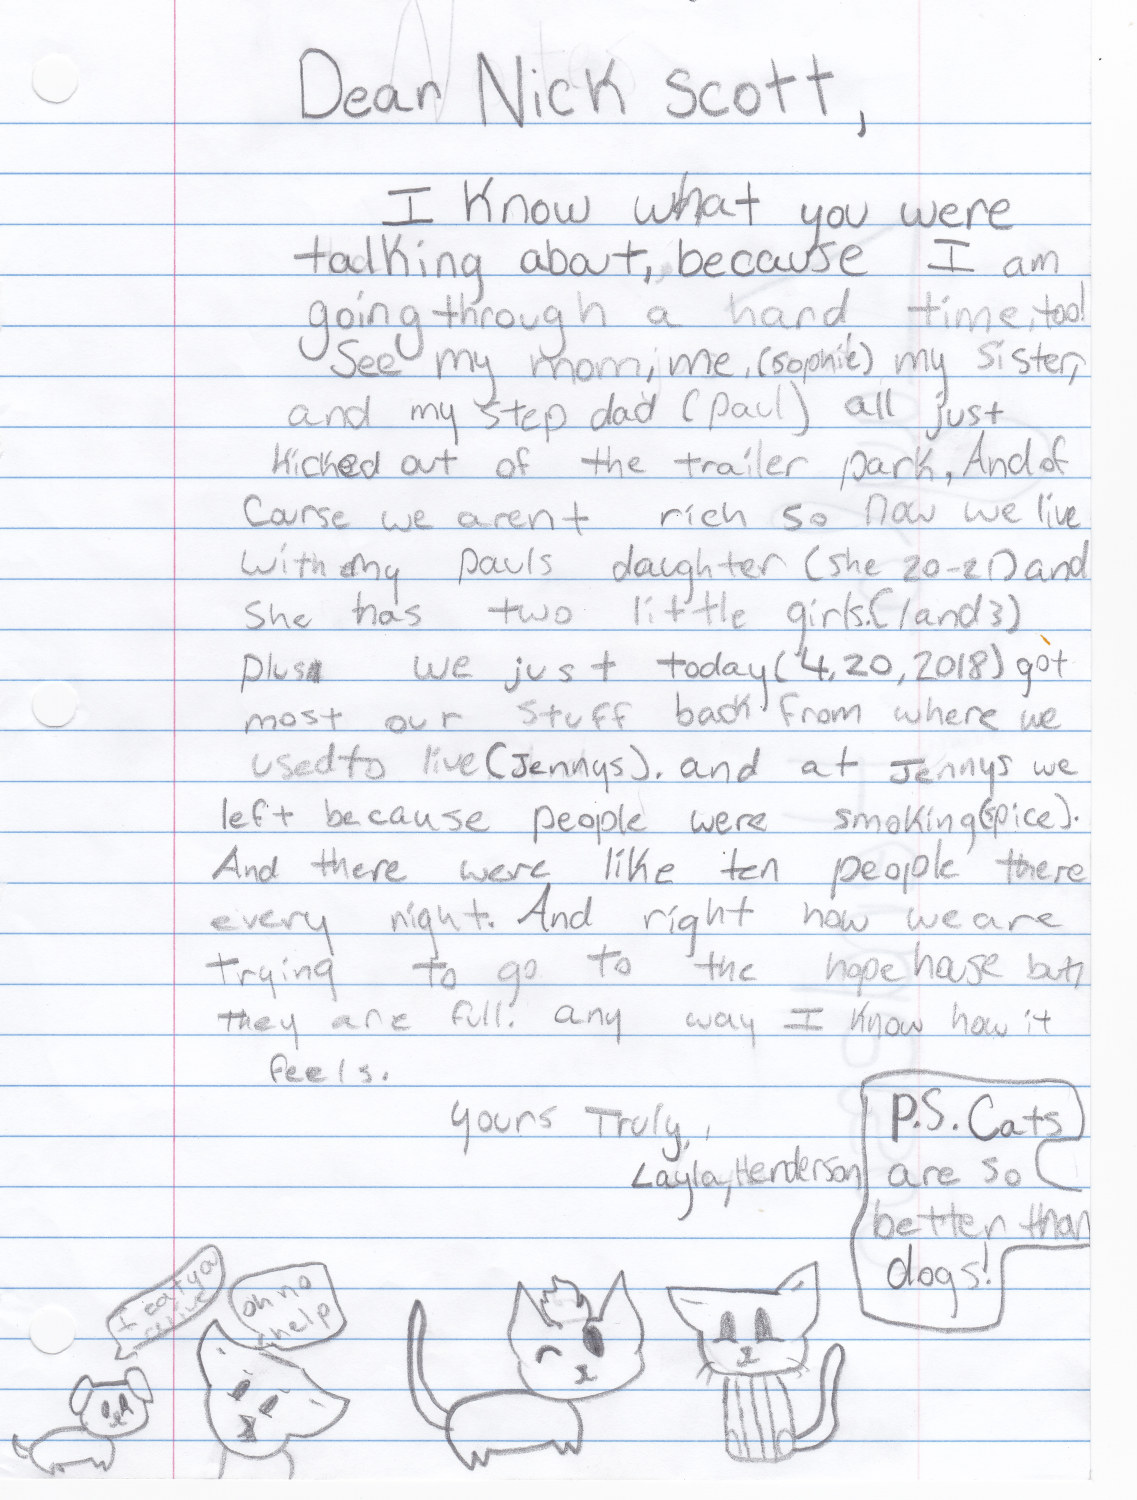 Dear Nick Scott,
I Know what you were
talking about, because I am
going through a hard time, too!
See my mom, me, (sophie) my sister,
and my step dad (paul) all just
kicked out of the trailer park, And of
Course we arent rich so now we live
with my pauls daughter (she 20-21) and
She has two little girls.(1 and 3)
plus we just today(4,20,2018) got
most our stuff back from where we
used to live (Jennys). and at Jennys we
left because people were smoking(spice).
And there were like ten people there
every night. And right now we are
trying to go to the hope house but,
they are full. any way I know how it
feels.
yours Truly,
Layla, Henderson
P.S. Cats
are so
better than
dogs!
I eat ya
oh no
help